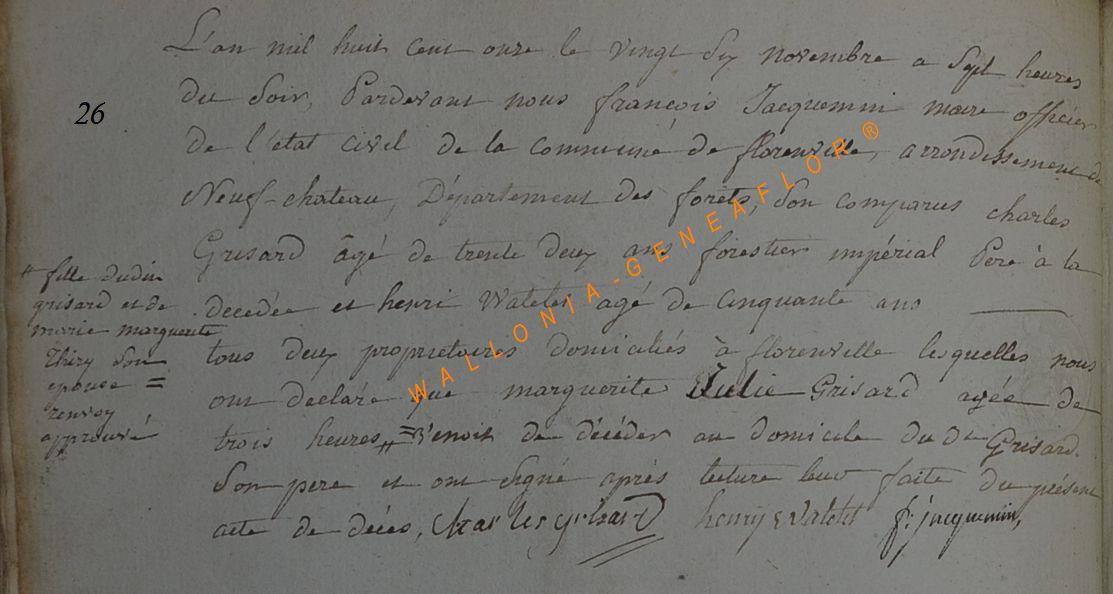 L'an mil huit cent onze le vingt six novembre a Sept heures
du Soir, Pardevant nous françois Jacquemin maire officier
26
de l'état civil de la commune de florenville, arrondissement de
Neufchateau, Département des forêts, Son comparus charles
Grisard âgé de trente deux ans forestier impérial Pere à la
decedée et henri Watelet agé de Cinquante ans
tous deux proprietaires domiciliés à florenville lesquelles nous
ont declaré que marguerite Julie Grisard agée de
trois heures, venoit de décéder au domicile du dt Grisard.
Son pere et ont Signé après lecture leur faite du présent
acte de décés, Charles grisard henry Watelet f: jacquemin,
" fille dudin
grisard et de
marie marguerite
Thiry Son
epouse =
renvoy
approuvé
WALLONIA-GENEAFLOR ®